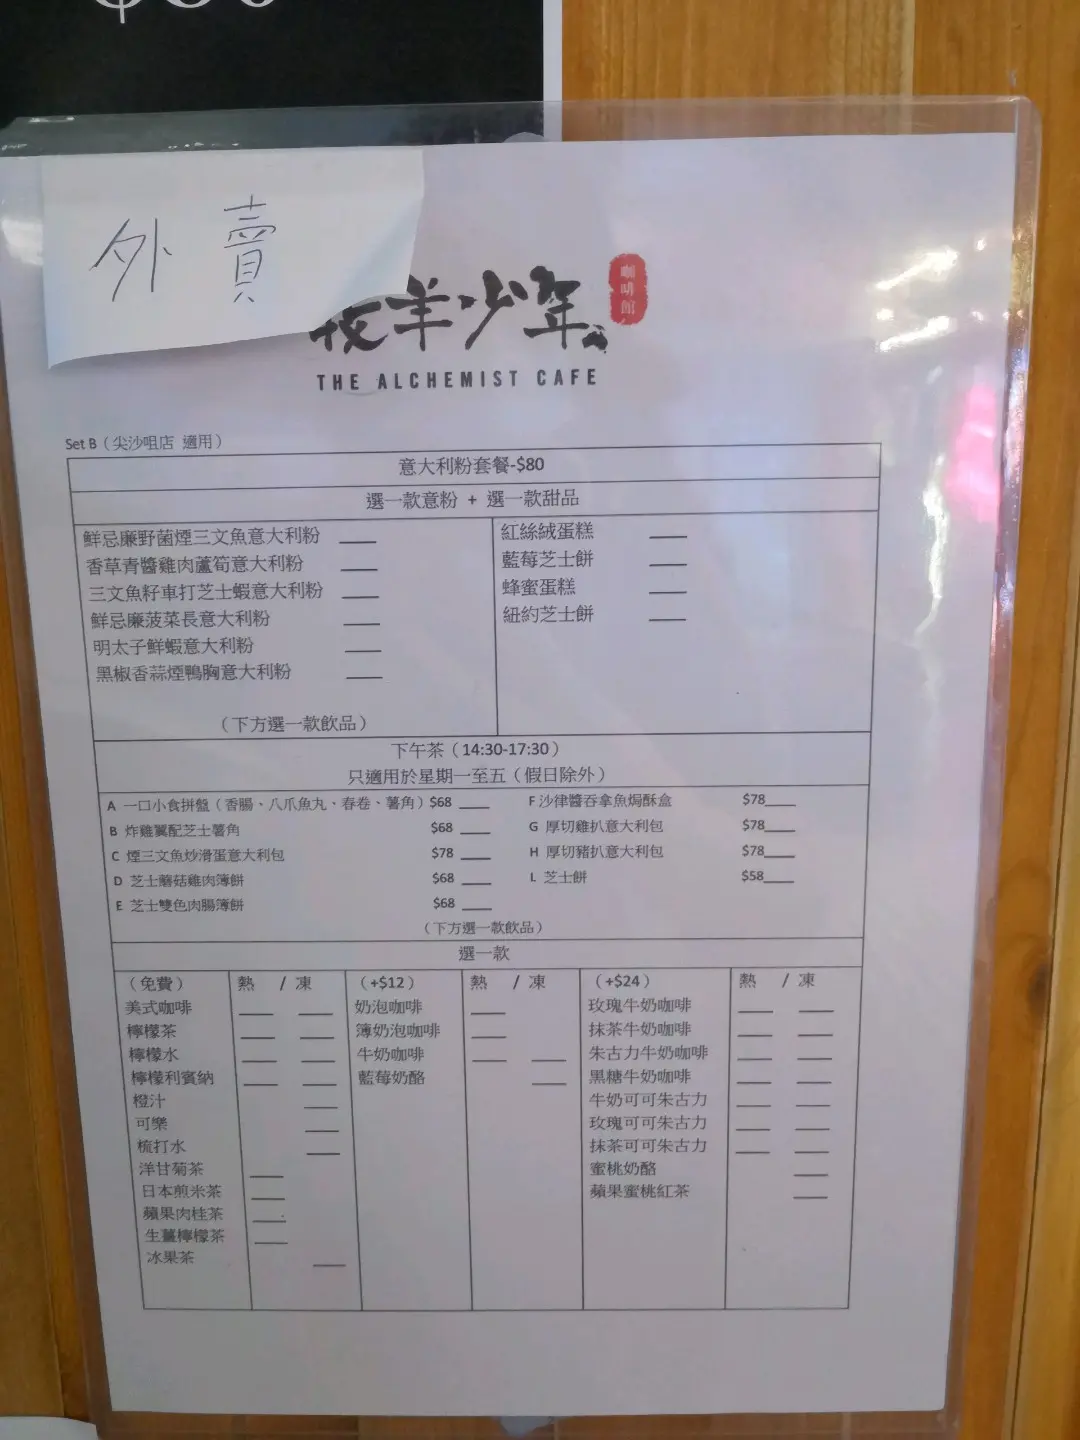 外賣
牧羊少年
咖啡館
THE ALCHEMIST CAFE
Set B（尖沙咀店 適用）
意大利粉套餐-$80
選一款意粉 + 選一款甜品
鮮忌廉野菌煙三文魚意大利粉 ___ 紅絲絨蛋糕 ___
香草青醬雞肉蘆筍意大利粉 ___ 藍莓芝士餅 ___
三文魚籽車打芝士蝦意大利粉 ___ 蜂蜜蛋糕 ___
鮮忌廉菠菜長意大利粉 ___ 紐約芝士餅 ___
明太子鮮蝦意大利粉 ___
黑椒香蒜煙鴨胸意大利粉 ___
（下方選一款飲品）
下午茶（14:30-17:30）
只適用於星期一至五（假日除外）
A 一口小食拼盤（香腸、八爪魚丸、春卷、薯角）$68 ___ F 沙律醬吞拿魚焗酥盒 $78___
B 炸雞翼配芝士薯角 $68 ___ G 厚切雞扒意大利包 $78___
C 煙三文魚炒滑蛋意大利包 $78 ___ H 厚切豬扒意大利包 $78___
D 芝士蘑菇雞肉簿餅 $68 ___ L 芝士餅 $58___
E 芝士雙色肉腸簿餅 $68 ___
（下方選一款飲品）
選一款
（免費） 熱 / 凍 （+$12） 熱 / 凍 （+$24） 熱 / 凍
美式咖啡 ___ ___ 奶泡咖啡 ___ 玫瑰牛奶咖啡 ___ ___
檸檬茶 ___ ___ 簿奶泡咖啡 ___ 抹茶牛奶咖啡 ___ ___
檸檬水 ___ ___ 牛奶咖啡 ___ ___ 朱古力牛奶咖啡 ___ ___
檸檬利賓納 ___ ___ 藍莓奶酪 ___ 黑糖牛奶咖啡 ___ ___
橙汁 ___ 牛奶可可朱古力 ___ ___
可樂 ___ 玫瑰可可朱古力 ___ ___
梳打水 ___ 抹茶可可朱古力 ___ ___
洋甘菊茶 ___ 蜜桃奶酪 ___
日本煎米茶 ___ 蘋果蜜桃紅茶 ___
蘋果肉桂茶 ___
生薑檸檬茶 ___
冰果茶 ___